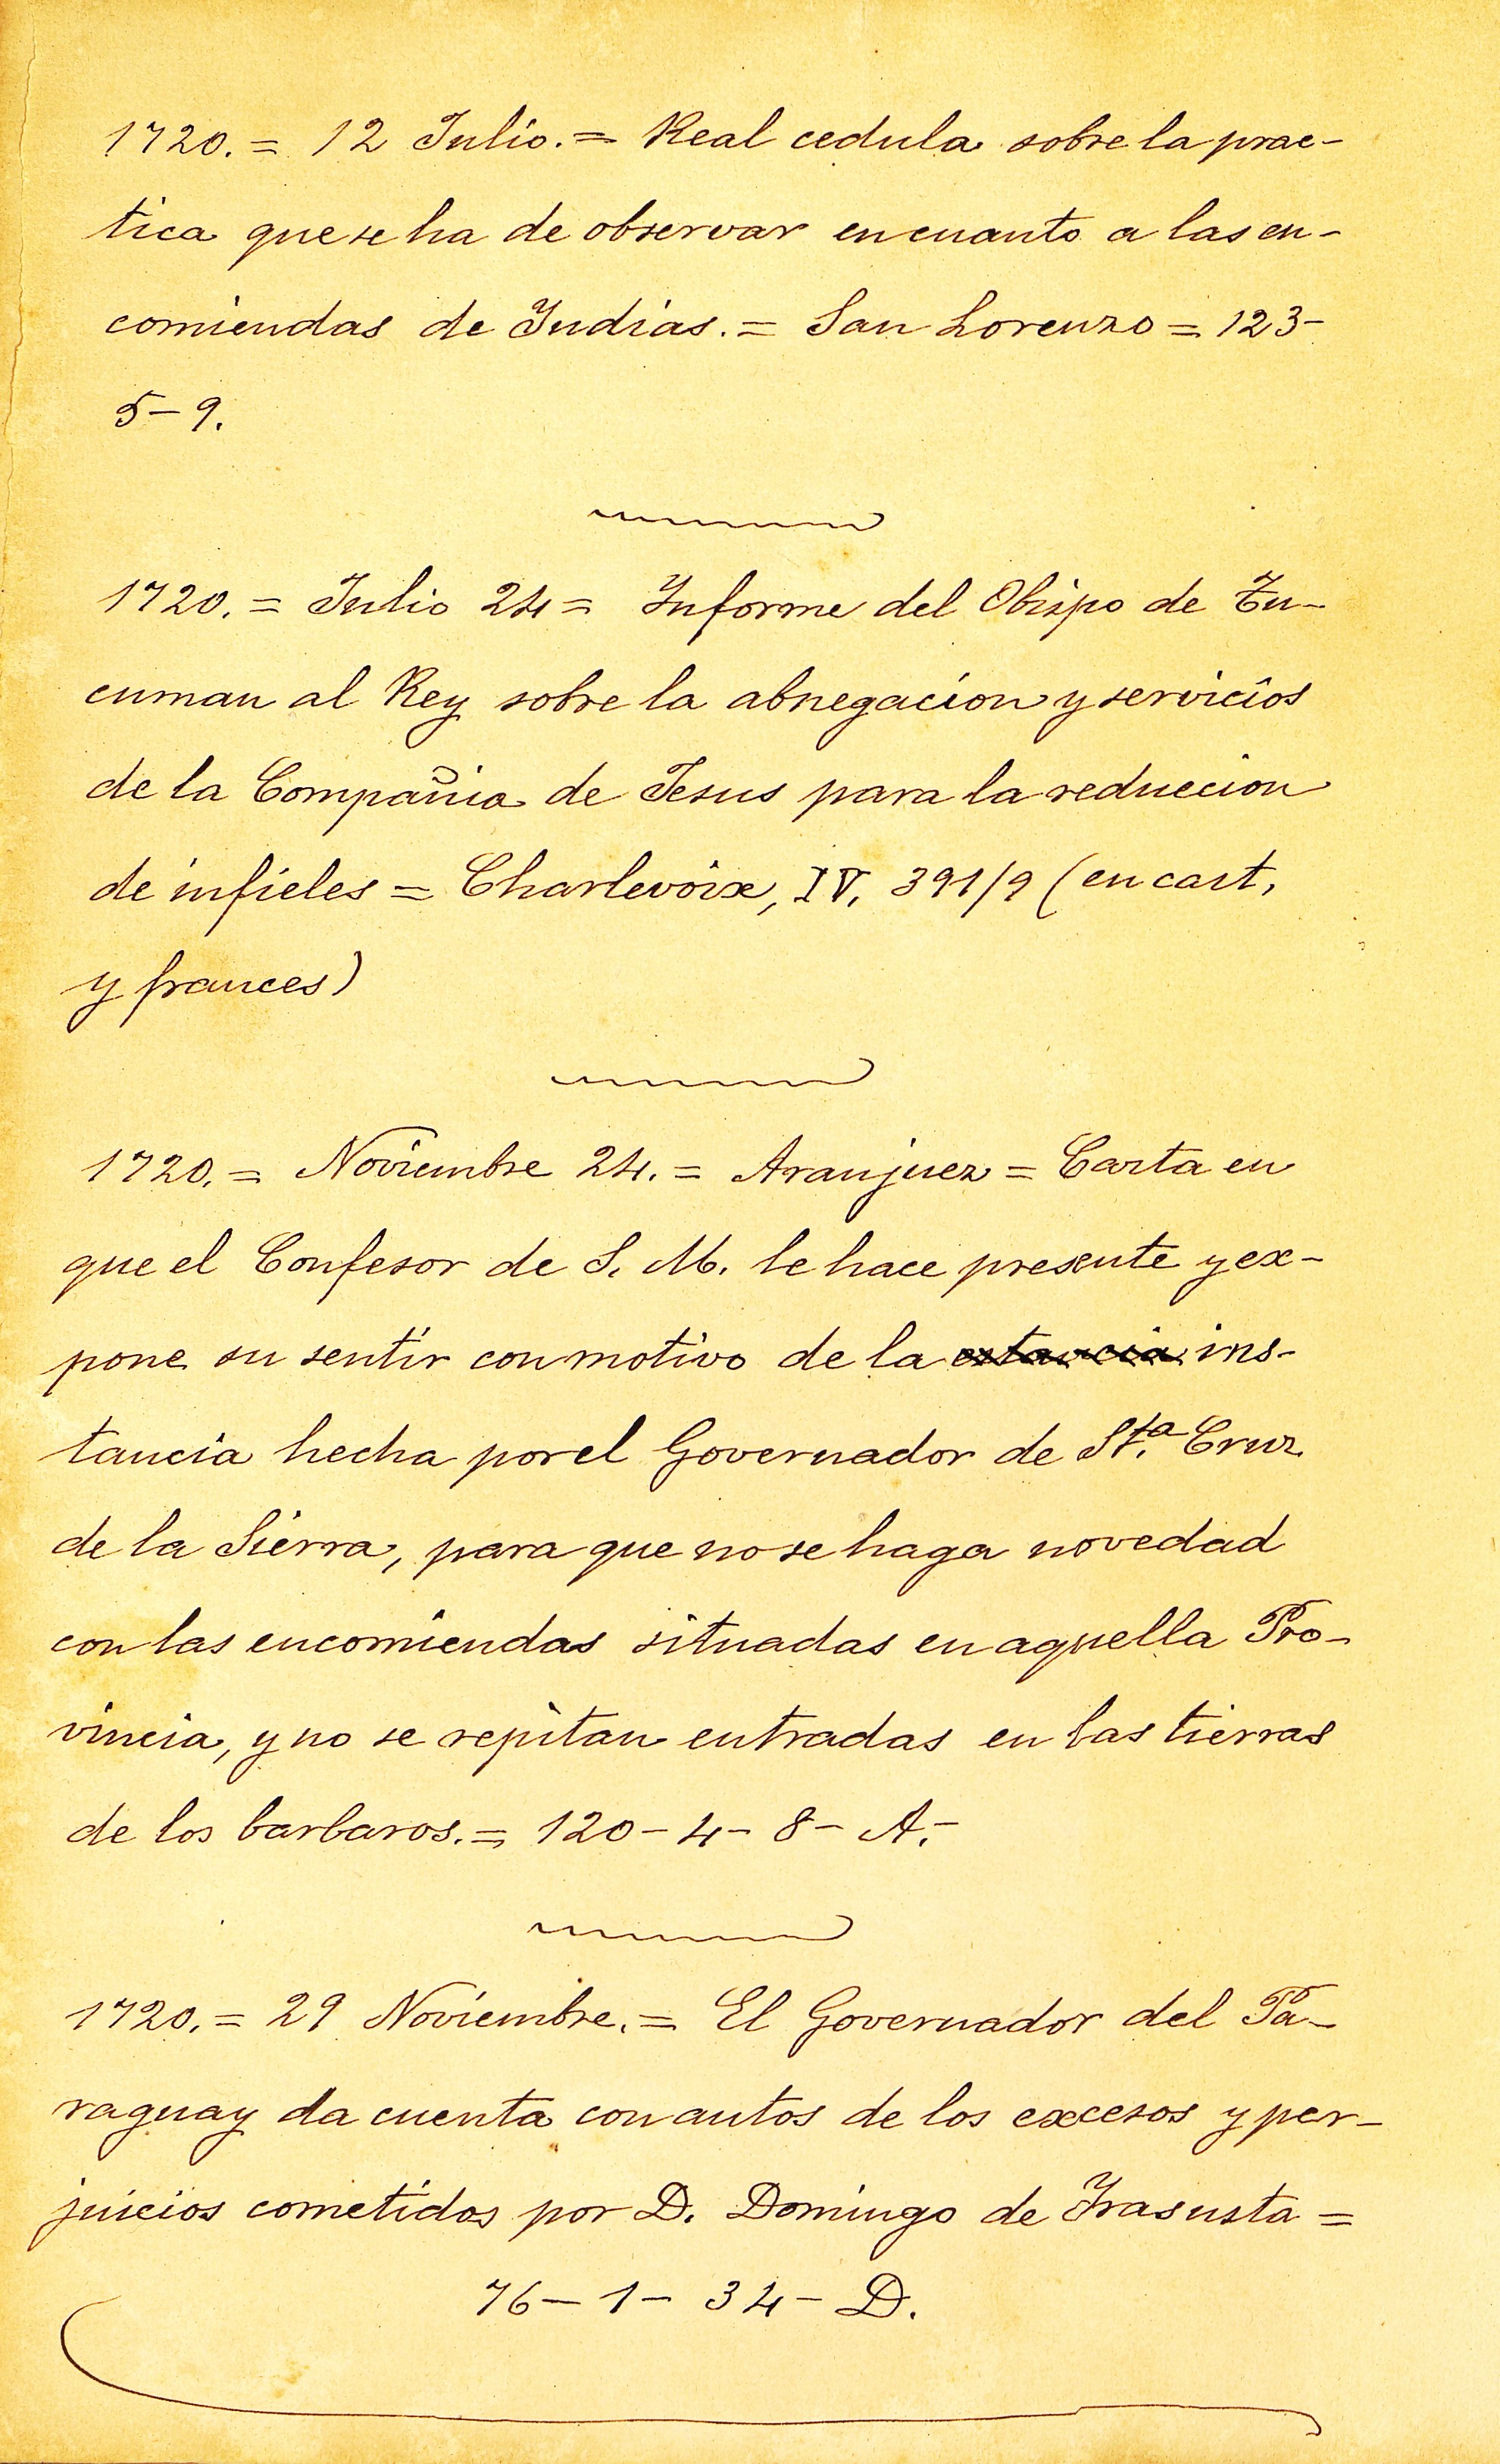 1720. = 12 Julio. = Real cedula sobre la prac-
tica que se ha de observar en cuanto a las en-
comiendas de Indias. = San Lorenzo = 123-
5-9.
1720. = Julio 24 = Informe del Obispo de Tu-
cuman al Rey sobre la abnegacion y servicios
de la Compañia de Jesus para la reduccion
de infieles = Charlevoix, IV, 391/9 (en cast.
y frances)
1720. = Noviembre 24. = Aranjuez = Carta en
que el Confesor de S. M. le hace presente y ex-
pone su sentir con motivo de la estancia ins-
tancia hecha por el Governador de Sta. Cruz
de la Sierra, para que no se haga novedad
con las encomiendas situadas en aquella Pro-
vincia, y no se repitan entradas en las tierras
de los barbaros. = 120-4-8-A.-
1720. = 29 Noviembre. = El Governador del Pa-
raguay da cuenta con autos de los excesos y per-
juicios cometidos por D. Domingo de Irasusta =
76-1-34-D.